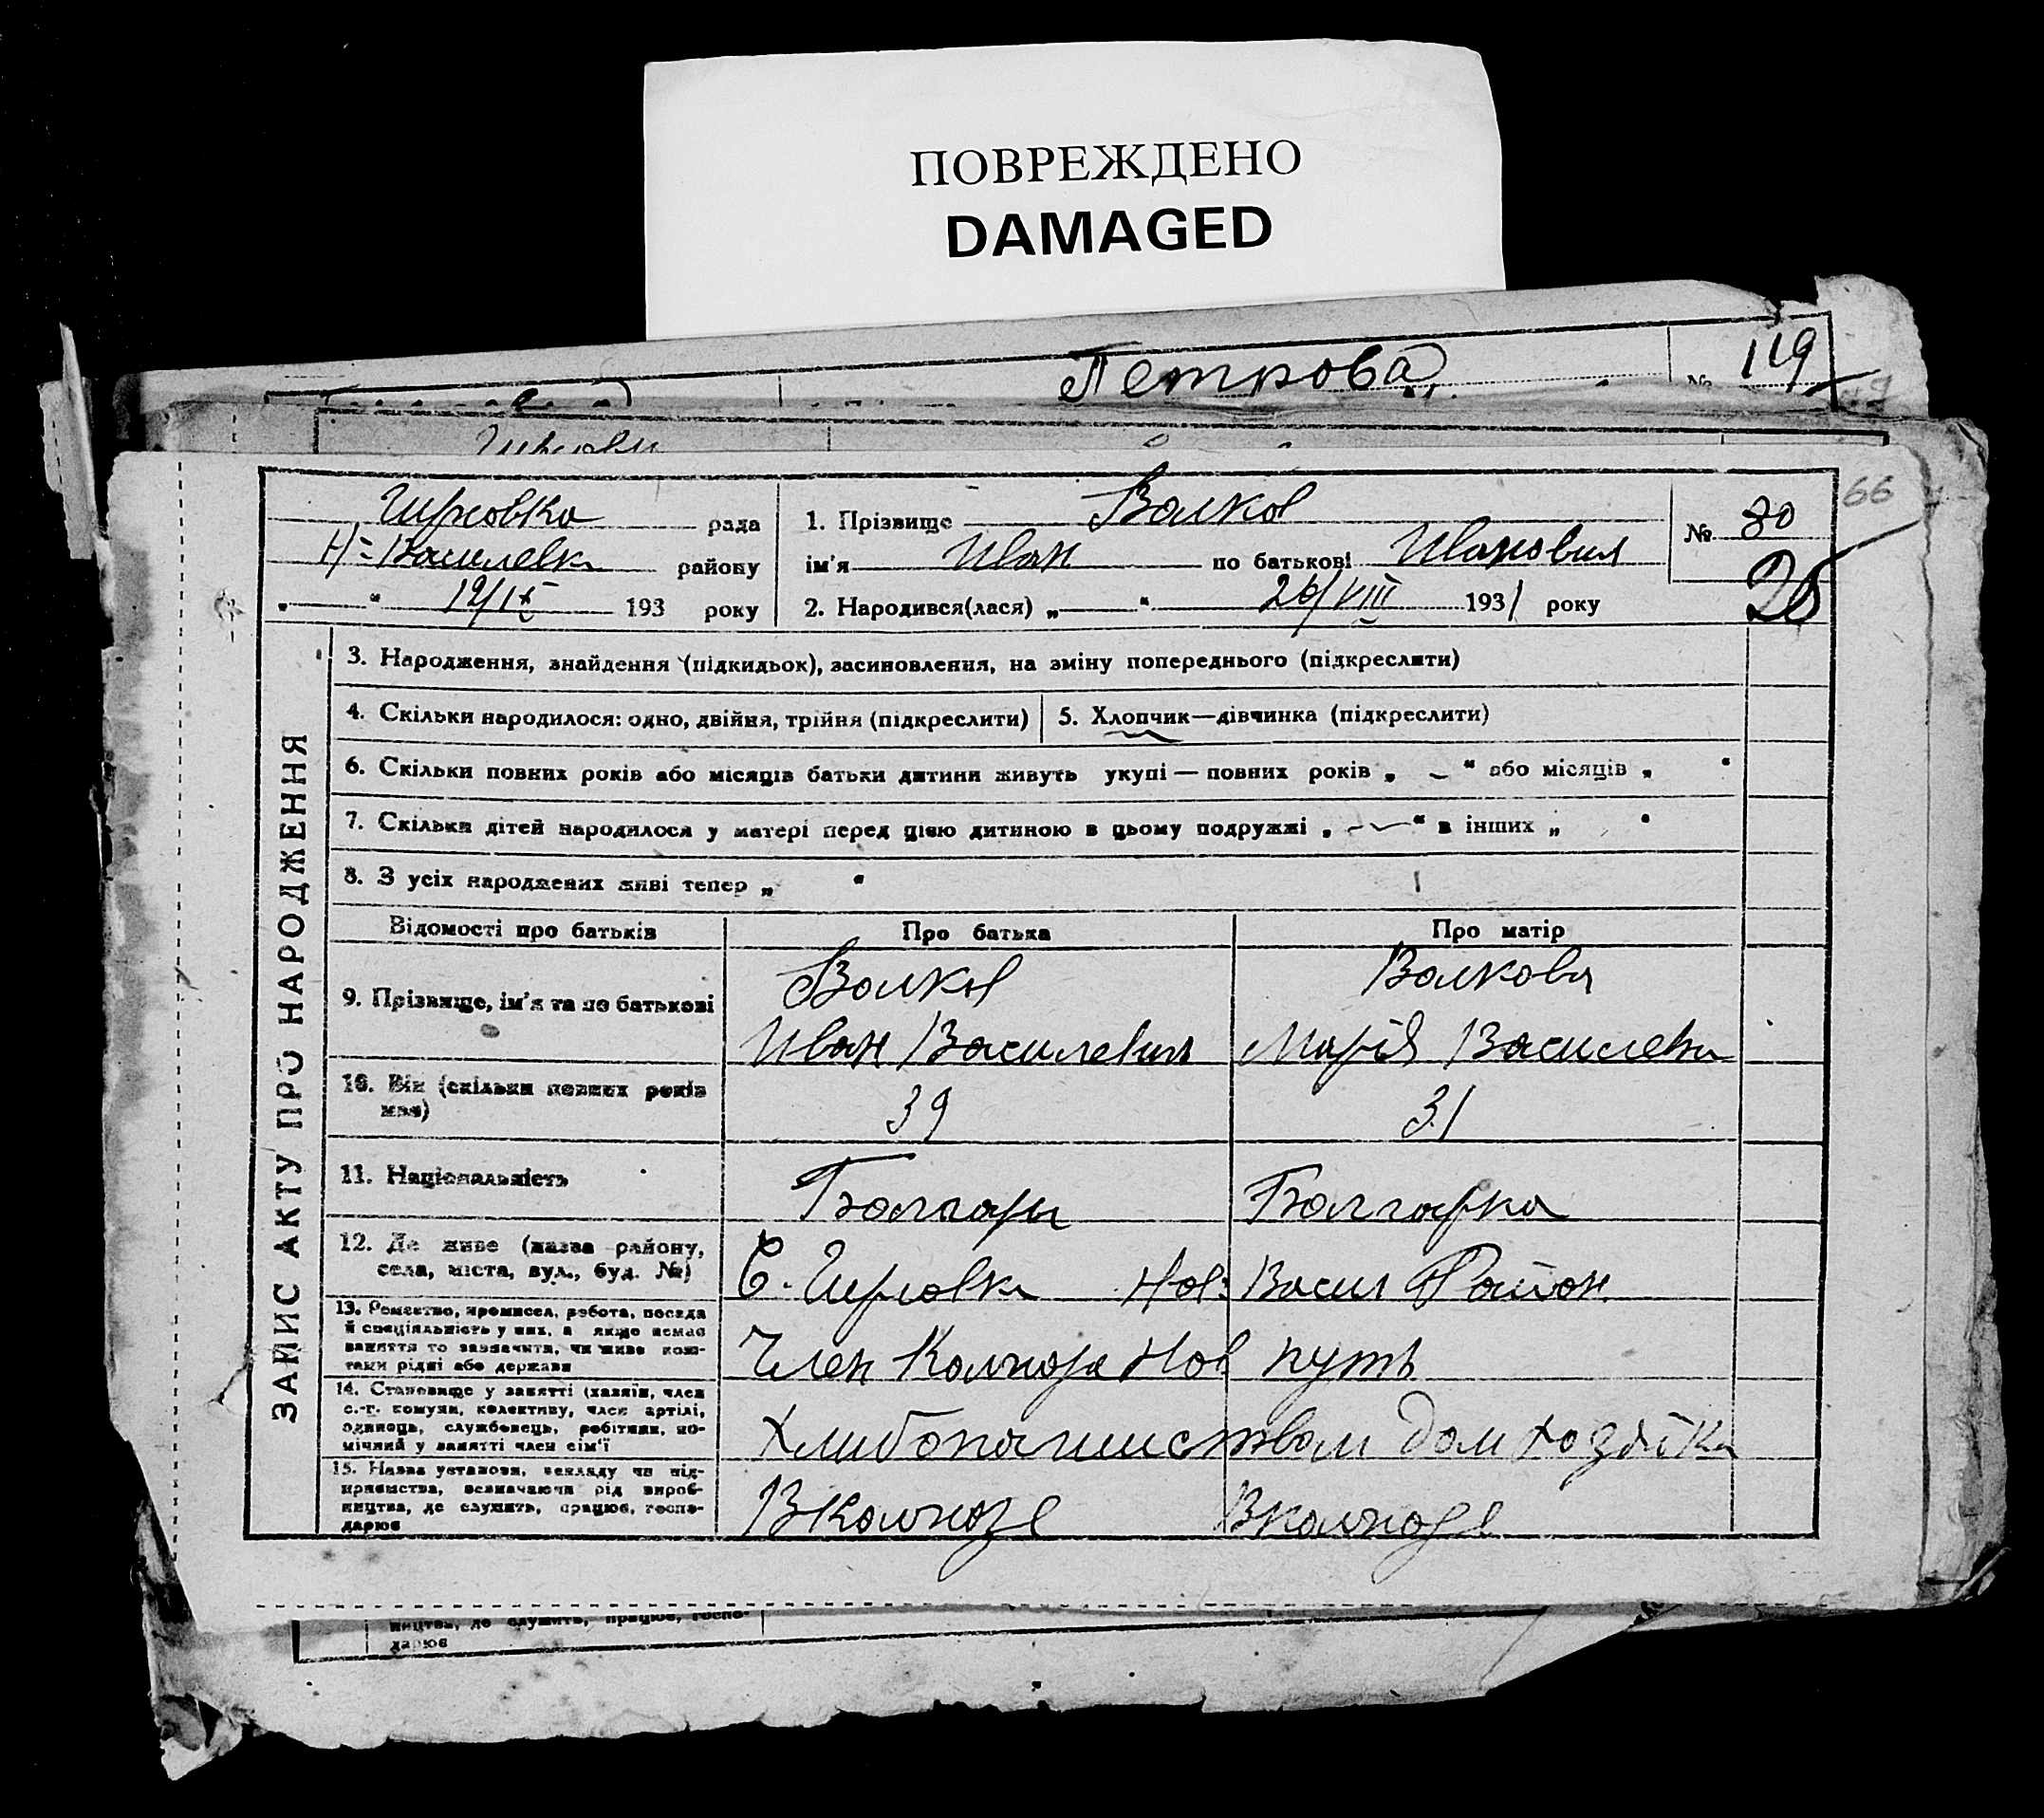 ПОВРЕЖДЕНО
DAMAGED
Петрова № 119
Гирсовка рада
Н=Василевка району
„ “ 12/IX 193 року
1. Прізвище Волков
ім'я Иван по батькові Иванович
2. Народився(лася) „ “ 26/VIII 1931 року
№ 80
66
ЗАПИС АКТУ ПРО НАРОДЖЕННЯ
3. Народження, знайдення (підкидьок), засиновлення, на зміну попереднього (підкреслити)
4. Скільки народилося: одно, двійня, трійня (підкреслити) 5. Хлопчик—дівчинка (підкреслити)
6. Скільки повних років або місяців батьки дитини живуть укупі — повних років „ — “ або місяців „ “
7. Скільки дітей народилося у матері перед цією дитиною в цьому подружжі „ — “ в інших „ “
8. З усіх народжених живі тепер „ “
Відомості про батьків Про батька Про матір
9. Прізвище, ім'я та по батькові
Волков Волкова
Иван Василевич Марія Василевна
10. Вік (скільки повних років
має)
39 31
11. Національність Болгари Болгарка
12. Де живе (назва району,
села, міста, вул., буд. №)
С. Гирсовка Нов: Васил Район
13. Ремество, промисел, робота, посада
й спеціяльність у них, а якщо немає
заняття то зазначити, чи живе кош-
тами рідні або держави
Член Колхоза Нов путь
14. Становище у занятті (хазяїн, член
с.-г. комуни, колективу, член артілі,
одинець, службовець, робітник, по-
мічний у занятті член сім'ї
Хлибопашиством дом хозяйка
15. Назва установи, закладу чи під-
приємства, зазначаючи рід вироб-
ництва, де служить, працює, госпо-
дарює
В Колхозе В колхозе
ництва, де служить, працює, госпо-
дарює